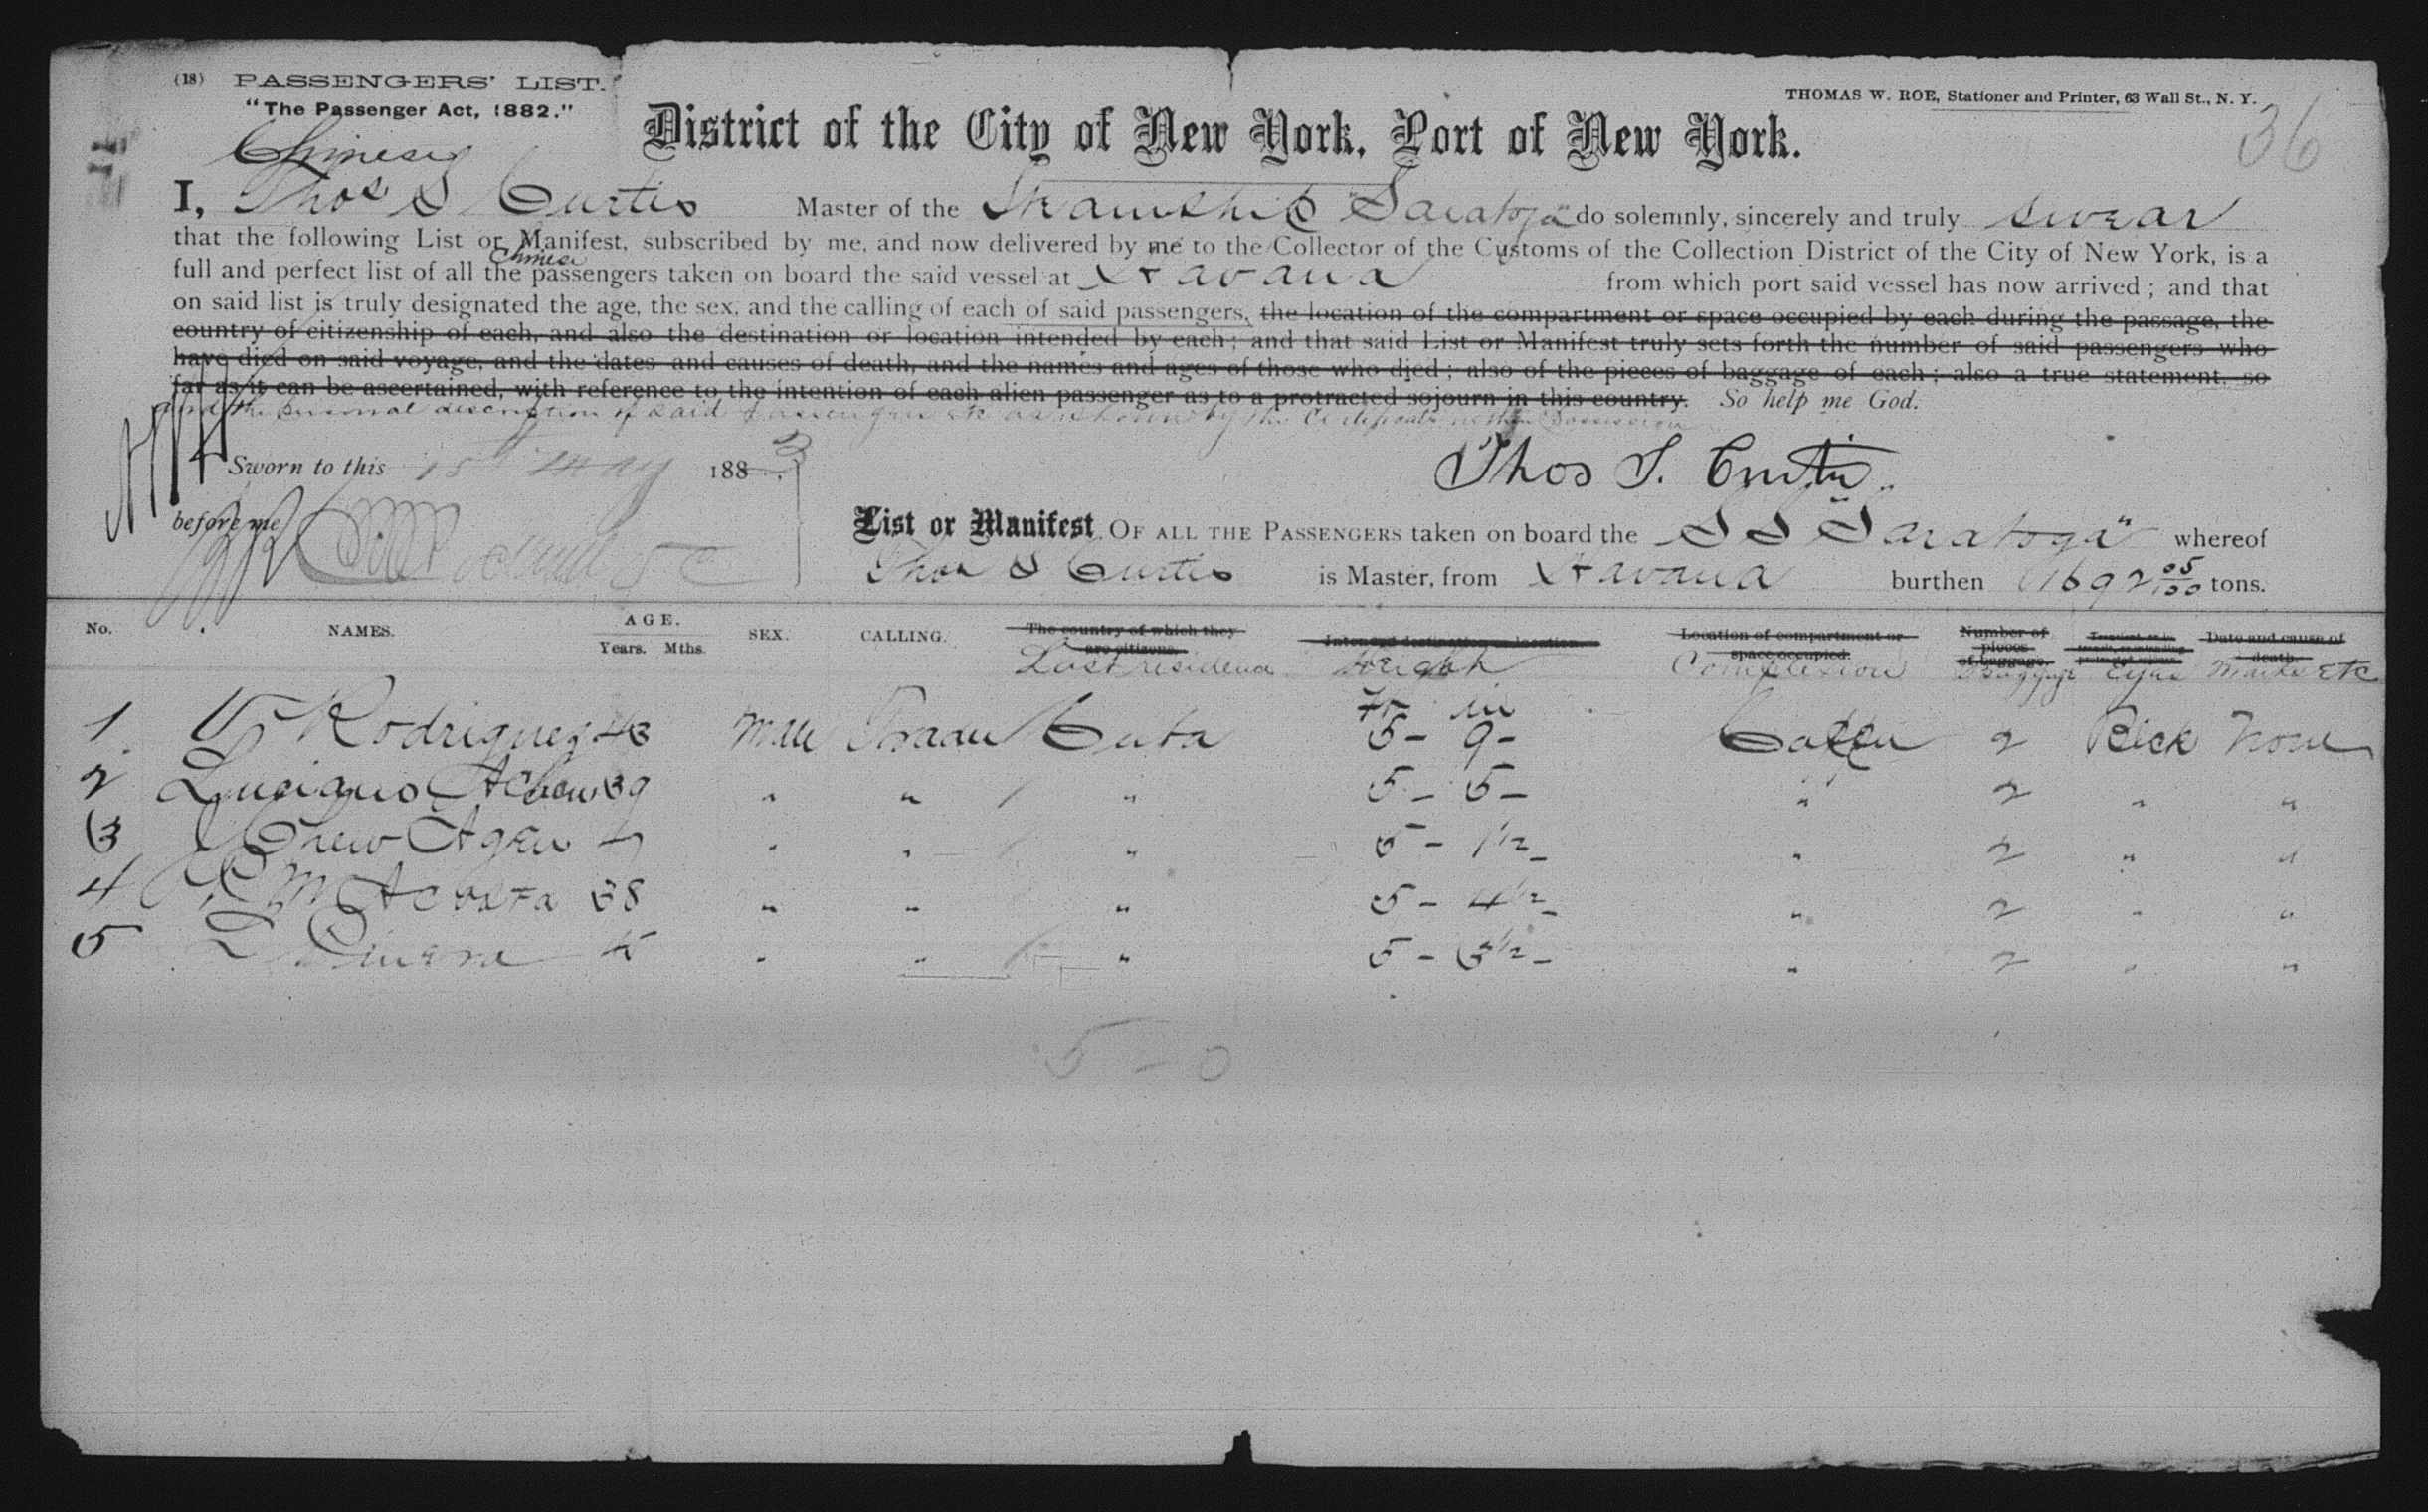 (18) PASSENGERS' LIST.
"The Passenger Act, 1882."
THOMAS W. ROE, Stationer and Printer, 63 Wall St., N. Y.
36
Chinese
District of the City of New York, Port of New York.
I, Thos S Curtis Master of the Steamship "Saratoga" do solemnly, sincerely and truly swear
that the following List or Manifest, subscribed by me, and now delivered by me to the Collector of the Customs of the Collection District of the City of New York, is a
Chinese
full and perfect list of all the passengers taken on board the said vessel at Havana from which port said vessel has now arrived; and that
on said list is truly designated the age, the sex, and the calling of each of said passengers, the location of the compartment or space occupied by each during the passage, the
country of citizenship of each, and also the destination or location intended by each; and that said List or Manifest truly sets forth the number of said passengers who
have died on said voyage, and the dates and causes of death, and the names and ages of those who died; also of the pieces of baggage of each; also a true statement, so
far as it can be ascertained, with reference to the intention of each alien passenger as to a protracted sojourn in this country. So help me God.
and the personal description of said passengers as shown by the Certificate in their possession
Sworn to this 15th May 1883
Thos S. Curtis
before me
List or Manifest, OF ALL THE PASSENGERS taken on board the SS "Saratoga" whereof
Thos S Curtis is Master, from Havana burthen 1692 05/100 tons.
No. NAMES. AGE. Years. Mths. SEX. CALLING. The country of which they are citizens. Intended destination or location Location of compartment or space occupied. Number of pieces of baggage. Date and cause of death.
Last residence Height Complexion Baggage Eyes Marks Etc
Ft in
1 Rodriguez 43 Male Cuba 5 - 9 - 2 None
2 Luciano Achow 39 " " " 5 - 5 - " 2 " "
3 Chew Agen " " " 5 - 1 1/2 - " 2 " "
4 M Acosta 38 " " " 5 - 4 1/2 - " 2 " "
5 " " " 5 - 3 1/2 - " 2 " "
5 - 0